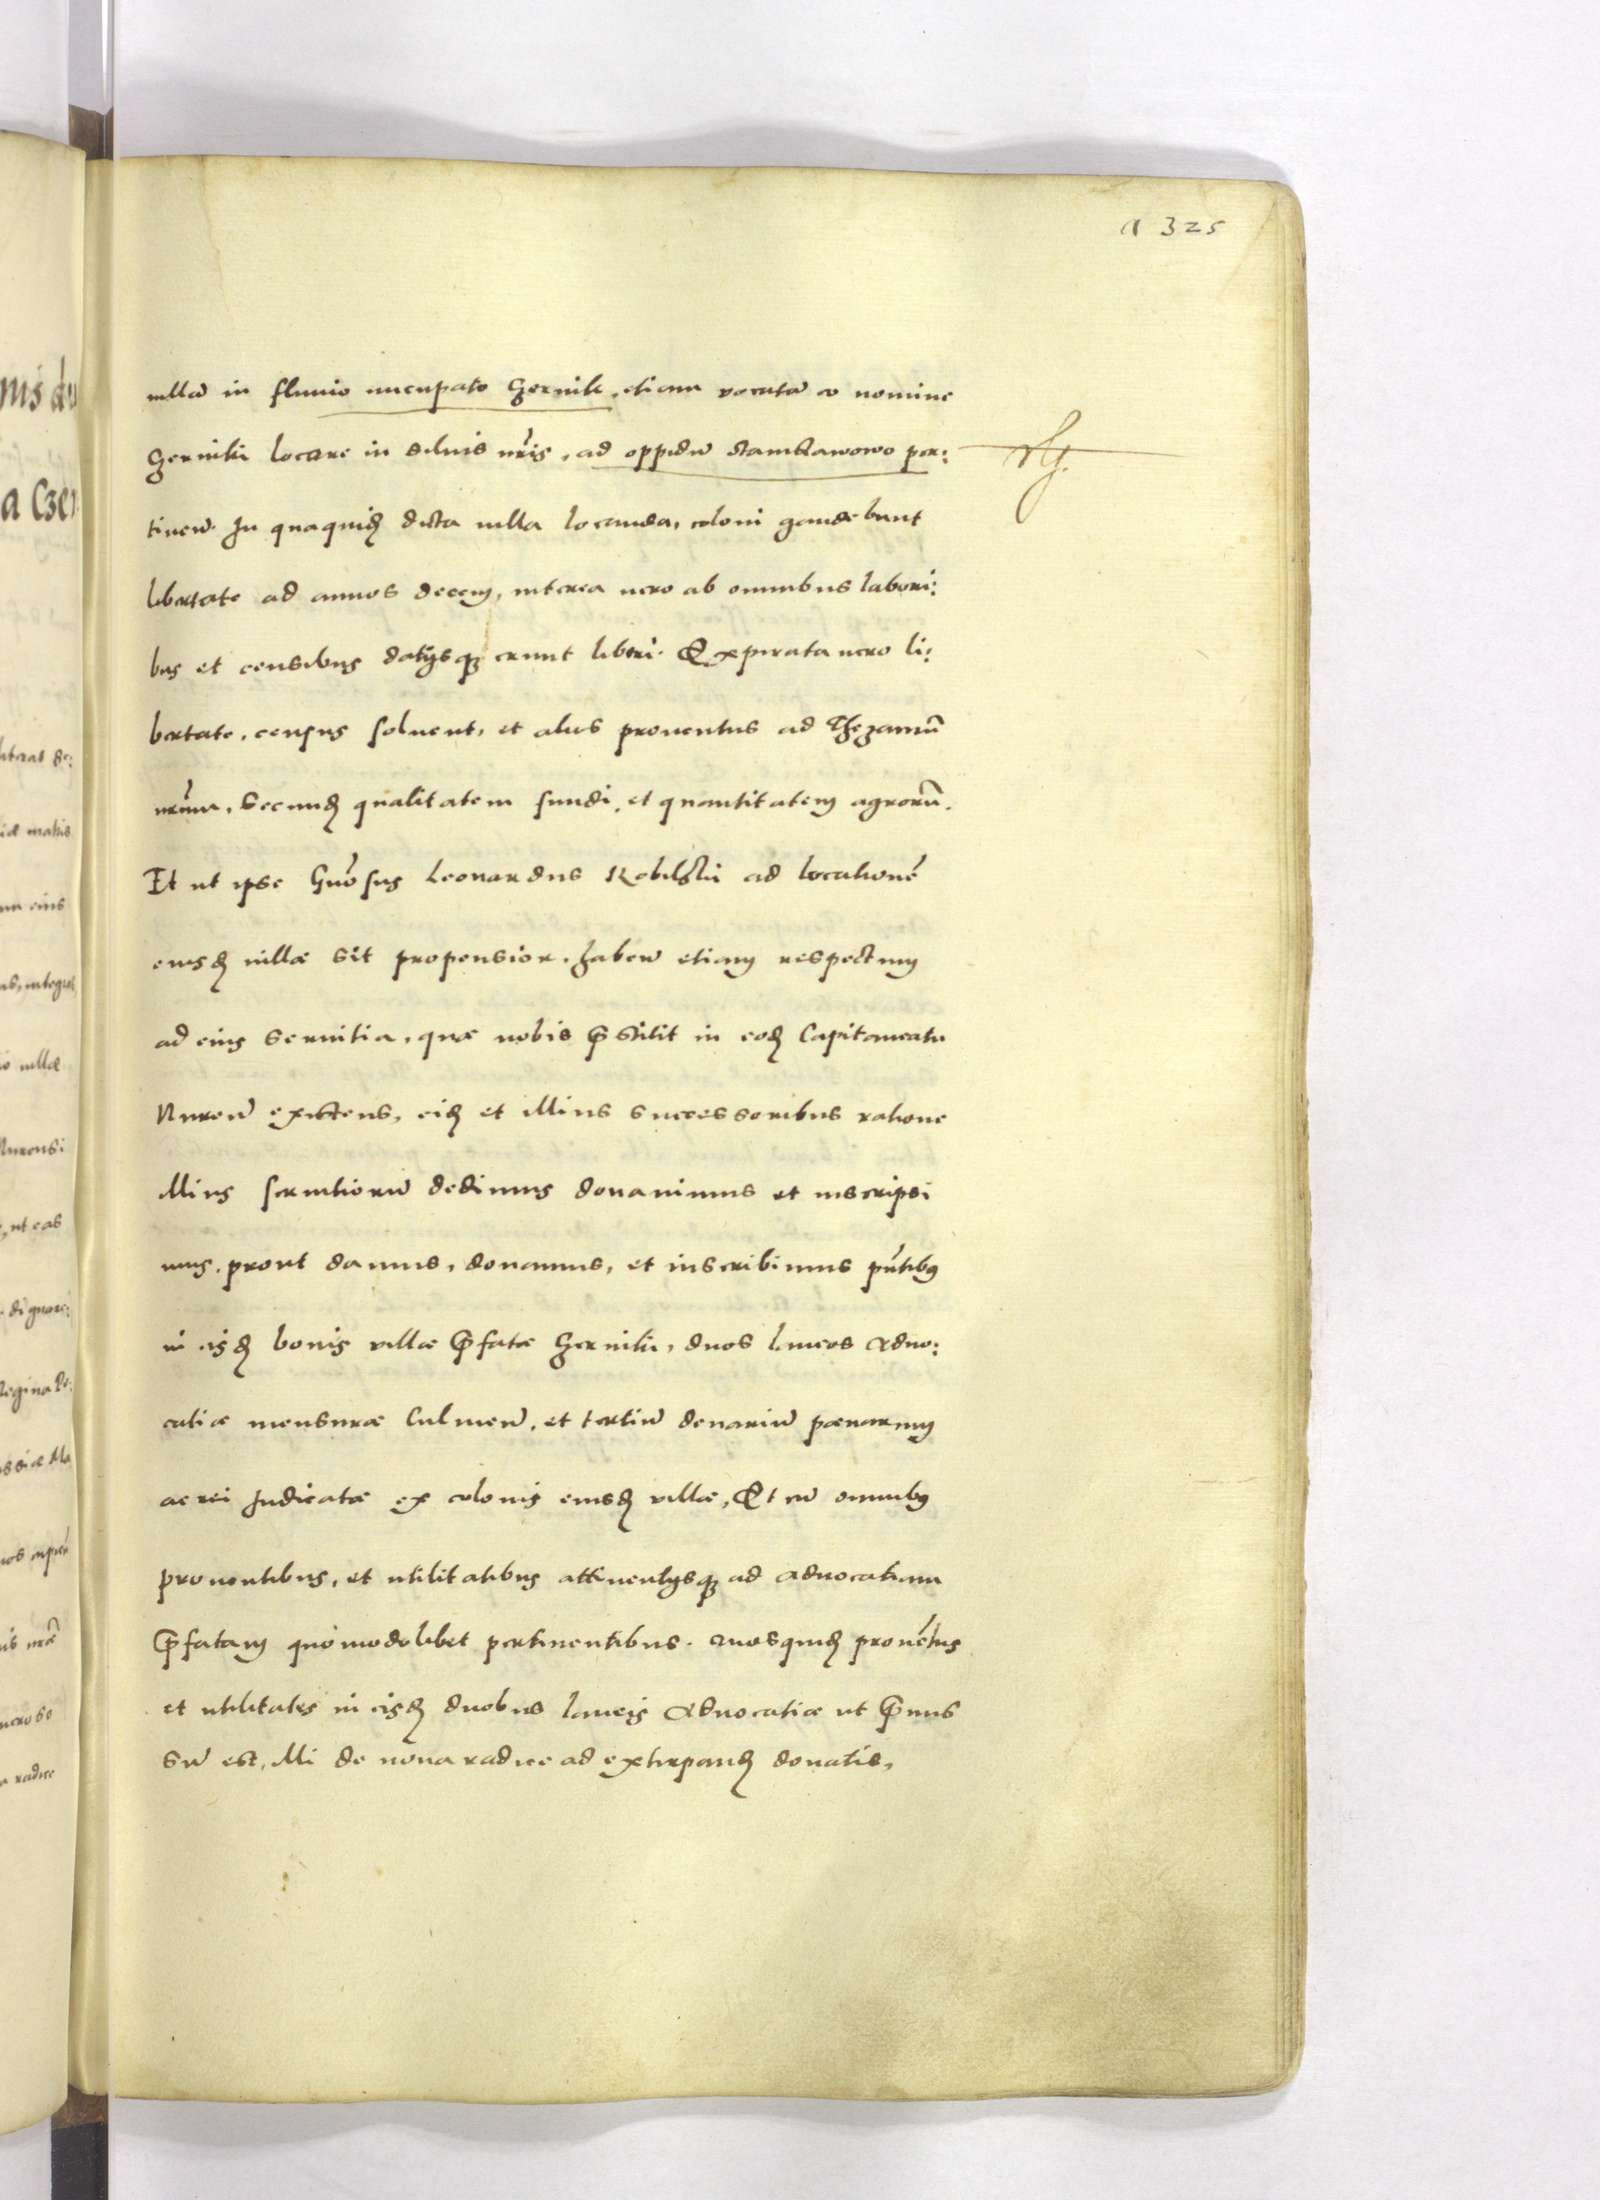 a 325
uillã in fluuio nucupato Gernik, etiam vocatã eo nomine
Gerniki locare in siluis nr̃is, ad oppidũ Stanislawowo per:
tineñ. In quaquid̃ dicta uilla locanda, coloni gaudebunt
libertate ad annos decem, interea uero ab omnibus labori:
bus et censibus datijsq; erunt liberi. Expirata uero li:
bertate, census soluent, et alios prouentus ad Thezaurũ
nr̃um, secund̃ qualitatem fundi, et quantitatem agrorũ.
Et ut ipse Gñosus Leonardus ad locationẽ
eiusd̃ uillæ sit propensior. Habeñ etiam respectum
ad eius seruitia, quæ nobis p̃stitit in eod̃ Capitaneatu
Nureñ existens, eid̃ et illius successoribus ratione
illius seruitiorũ dedimus donauimus et inscripsi
mus, prout damus, donamus, et inscribimus pñtibus
in eisd̃ bonis villæ p̃fatæ Gerniki, duos laneos aduo:
catiæ mensuræ Culmeñ, et tertiũ denariũ pœnarum
ac rei Judicatæ ex colonis eiusd̃ villæ, Et cũ omnibus
prouentibus, et utilitatibus attinentijsq; ad aduocatiam
p̃fatam quomodolibet pertinentibus. Quosquid̃ prouẽtus
et utilitates in eisd̃ duobus laneis Aduocatiæ ut p̃mis
sũ est, illi de noua radice ad extirpand̃ donatis,